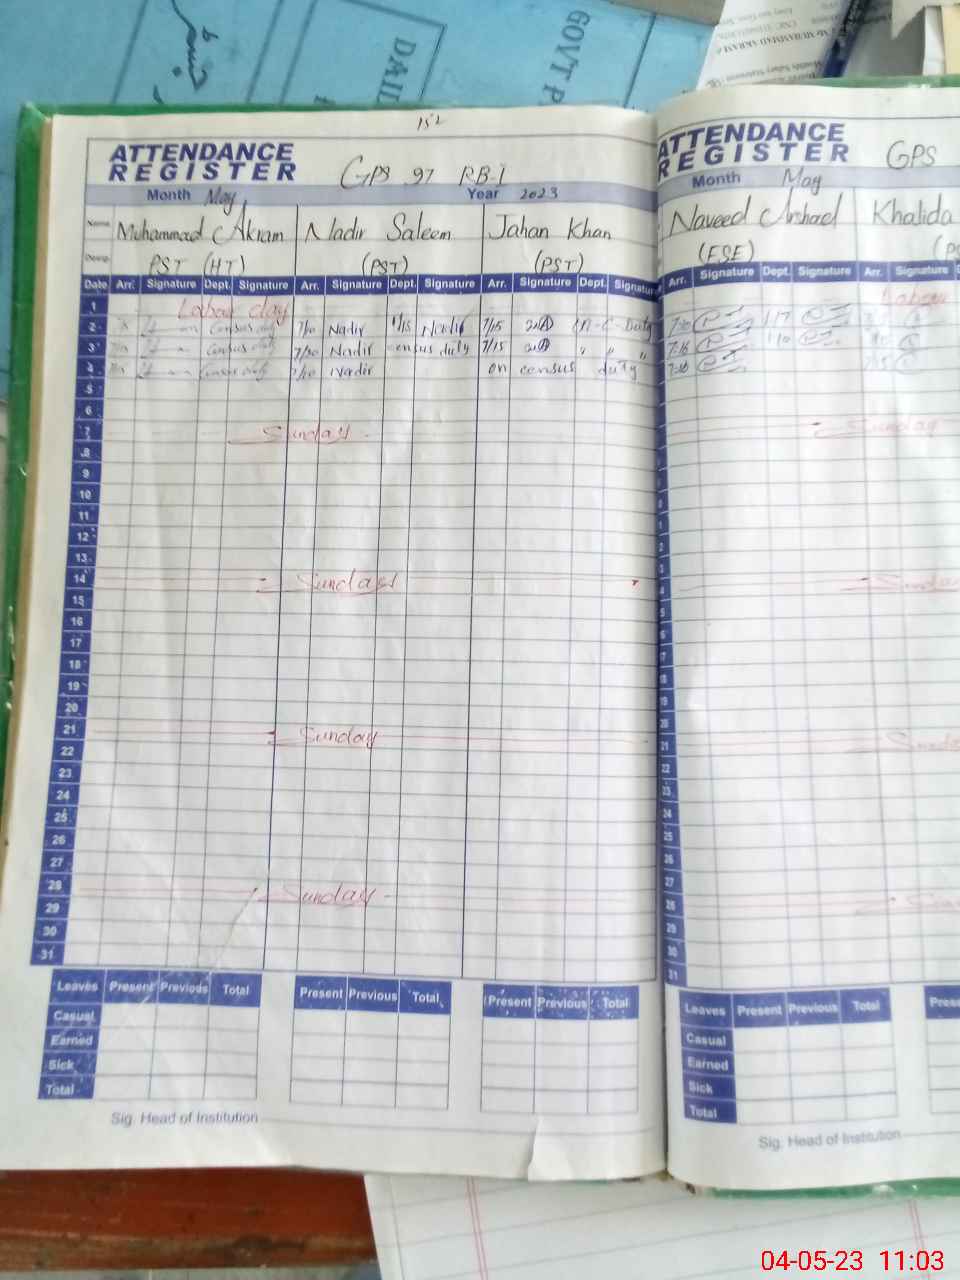 GOVT P
DAIL
MUHAMMAD AKRAM
Monthly Salary Statement
152
ATTENDANCE
REGISTER
GPS 97 RB-I
Month May Year 2023
Name Muhammad Akram Nadir Saleem Jahan Khan
Desig. PST (HT) (PST) (PST)
Date Arr. Signature Dept. Signature Arr. Signature Dept. Signature Arr. Signature Dept. Signature
1 Labour day
2 Census duty 7/20 Nadir 1/15 Nadir 7/15 Duty
3 Census duty 7/20 Nadir census duty 7/15 " " "
4 Census duty 7/20 Nadir on census duty
5
6
7 Sunday
8
9
10
11
12
13
14 Sunday
15
16
17
18
19
20
21 Sunday
22
23
24
25
26
27
28 Sunday
29
30
31
Leaves Present Previous Total Present Previous Total Present Previous Total
Casual
Earned
Sick
Total
Sig. Head of Institution
ATTENDANCE
REGISTER
GPS
Month May
Naveed Arshad Khalida
(ESE)
Arr. Signature Dept. Signature Arr. Signature
Labour
7:20 1/17
7:15 1/10
7:20
Sunday
Leaves Present Previous Total
Casual
Earned
Sick
Total
Sig. Head of Institution
04-05-23 11:03